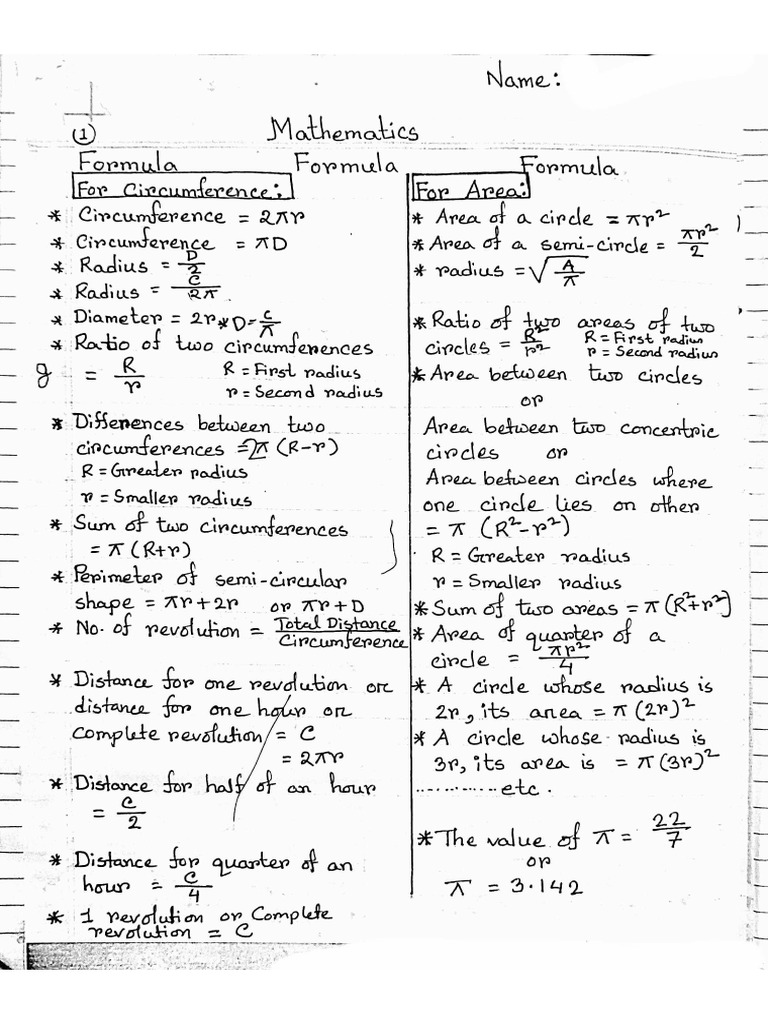 Name:
(1) Mathematics
Formula Formula Formula
For Circumference:
* Circumference = 2πr
* Circumference = πD
* Radius = D/2
* Radius = C/2π
* Diameter = 2r * D = C/π
* Ratio of two circumferences
g = R/r R = First radius
r = Second radius
* Differences between two
circumferences = 2π (R-r)
R = Greater radius
r = Smaller radius
* Sum of two circumferences
= π (R+r)
* Perimeter of semi-circular
shape = πr + 2r or πr + D
* No. of revolution = Total Distance/Circumference
* Distance for one revolution or
distance for one hour or
complete revolution = C
= 2πr
* Distance for half of an hour
= C/2
* Distance for quarter of an
hour = C/4
* 1 revolution or Complete
revolution = C
For Area:
* Area of a circle = πr²
* Area of a semi-circle = πr²/2
* radius = √A/π
* Ratio of two areas of two
circles = R²/r² R = First radius
r = Second radius
* Area between two circles
or
Area between two concentric
circles or
Area between circles where
one circle lies on other
= π (R²-r²)
R = Greater radius
r = Smaller radius
* Sum of two areas = π(R²+r²)
* Area of quarter of a
circle = πr²/4
* A circle whose radius is
2r, its area = π(2r)²
* A circle whose radius is
3r, its area is = π(3r)²
............ etc.
* The value of π = 22/7
or
π = 3.142